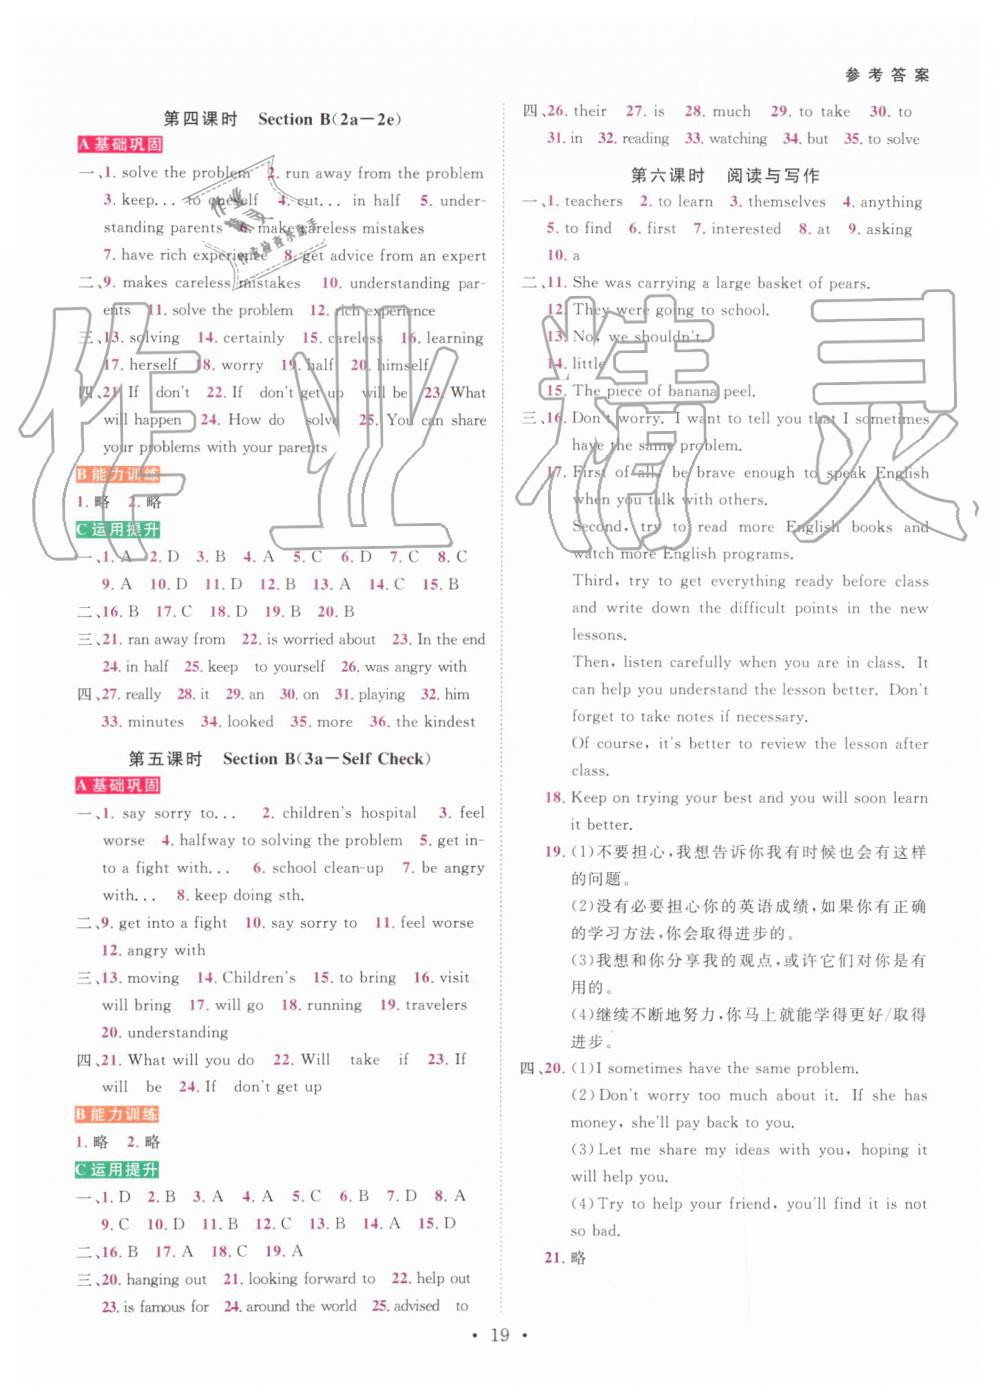 参考答案
第四课时 Section B(2a—2e)
A 基础巩固
一、1. solve the problem 2. run away from the problem
3. keep... to oneself 4. cut... in half 5. under-
standing parents 6. make careless mistakes
7. have rich experience 8. get advice from an expert
二、9. makes careless mistakes 10. understanding par-
ents 11. solve the problem 12. rich experience
三、13. solving 14. certainly 15. careless 16. learning
17. herself 18. worry 19. half 20. himself
四、21. If don't 22. If don't get up will be 23. What
will happen 24. How do solve 25. You can share
your problems with your parents
B 能力训练
1. 略 2. 略
C 运用提升
一、1. A 2. D 3. B 4. A 5. C 6. D 7. C 8. C
9. A 10. D 11. D 12. B 13. A 14. C 15. B
二、16. B 17. C 18. D 19. B 20. B
三、21. ran away from 22. is worried about 23. In the end
24. in half 25. keep to yourself 26. was angry with
四、27. really 28. it 29. an 30. on 31. playing 32. him
33. minutes 34. looked 35. more 36. the kindest
第五课时 Section B(3a—Self Check)
A 基础巩固
一、1. say sorry to... 2. children's hospital 3. feel
worse 4. halfway to solving the problem 5. get in-
to a fight with... 6. school clean-up 7. be angry
with... 8. keep doing sth.
二、9. get into a fight 10. say sorry to 11. feel worse
12. angry with
三、13. moving 14. Children's 15. to bring 16. visit
will bring 17. will go 18. running 19. travelers
20. understanding
四、21. What will you do 22. Will take if 23. If
will be 24. If don't get up
B 能力训练
1. 略 2. 略
C 运用提升
一、1. D 2. B 3. A 4. A 5. C 6. B 7. D 8. A
9. C 10. D 11. B 12. C 13. B 14. A 15. D
二、16. B 17. A 18. C 19. A
三、20. hanging out 21. looking forward to 22. help out
23. is famous for 24. around the world 25. advised to
四、26. their 27. is 28. much 29. to take 30. to
31. in 32. reading 33. watching 34. but 35. to solve
第六课时 阅读与写作
一、1. teachers 2. to learn 3. themselves 4. anything
5. to find 6. first 7. interested 8. at 9. asking
10. a
二、11. She was carrying a large basket of pears.
12. They were going to school.
13. No, we shouldn't.
14. little
15. The piece of banana peel.
三、16. Don't worry. I want to tell you that I sometimes
have the same problem.
17. First of all, be brave enough to speak English
when you talk with others.
Second, try to read more English books and
watch more English programs.
Third, try to get everything ready before class
and write down the difficult points in the new
lessons.
Then, listen carefully when you are in class. It
can help you understand the lesson better. Don't
forget to take notes if necessary.
Of course, it's better to review the lesson after
class.
18. Keep on trying your best and you will soon learn
it better.
19. (1)不要担心,我想告诉你我有时候也会有这样
的问题。
(2)没有必要担心你的英语成绩,如果你有正确
的学习方法,你会取得进步的。
(3)我想和你分享我的观点,或许它们对你是有
用的。
(4)继续不断地努力,你马上就能学得更好/取得
进步。
四、20. (1)I sometimes have the same problem.
(2)Don't worry too much about it. If she has
money, she'll pay back to you.
(3)Let me share my ideas with you, hoping it
will help you.
(4)Try to help your friend, you'll find it is not
so bad.
21. 略
• 19 •
作业精灵